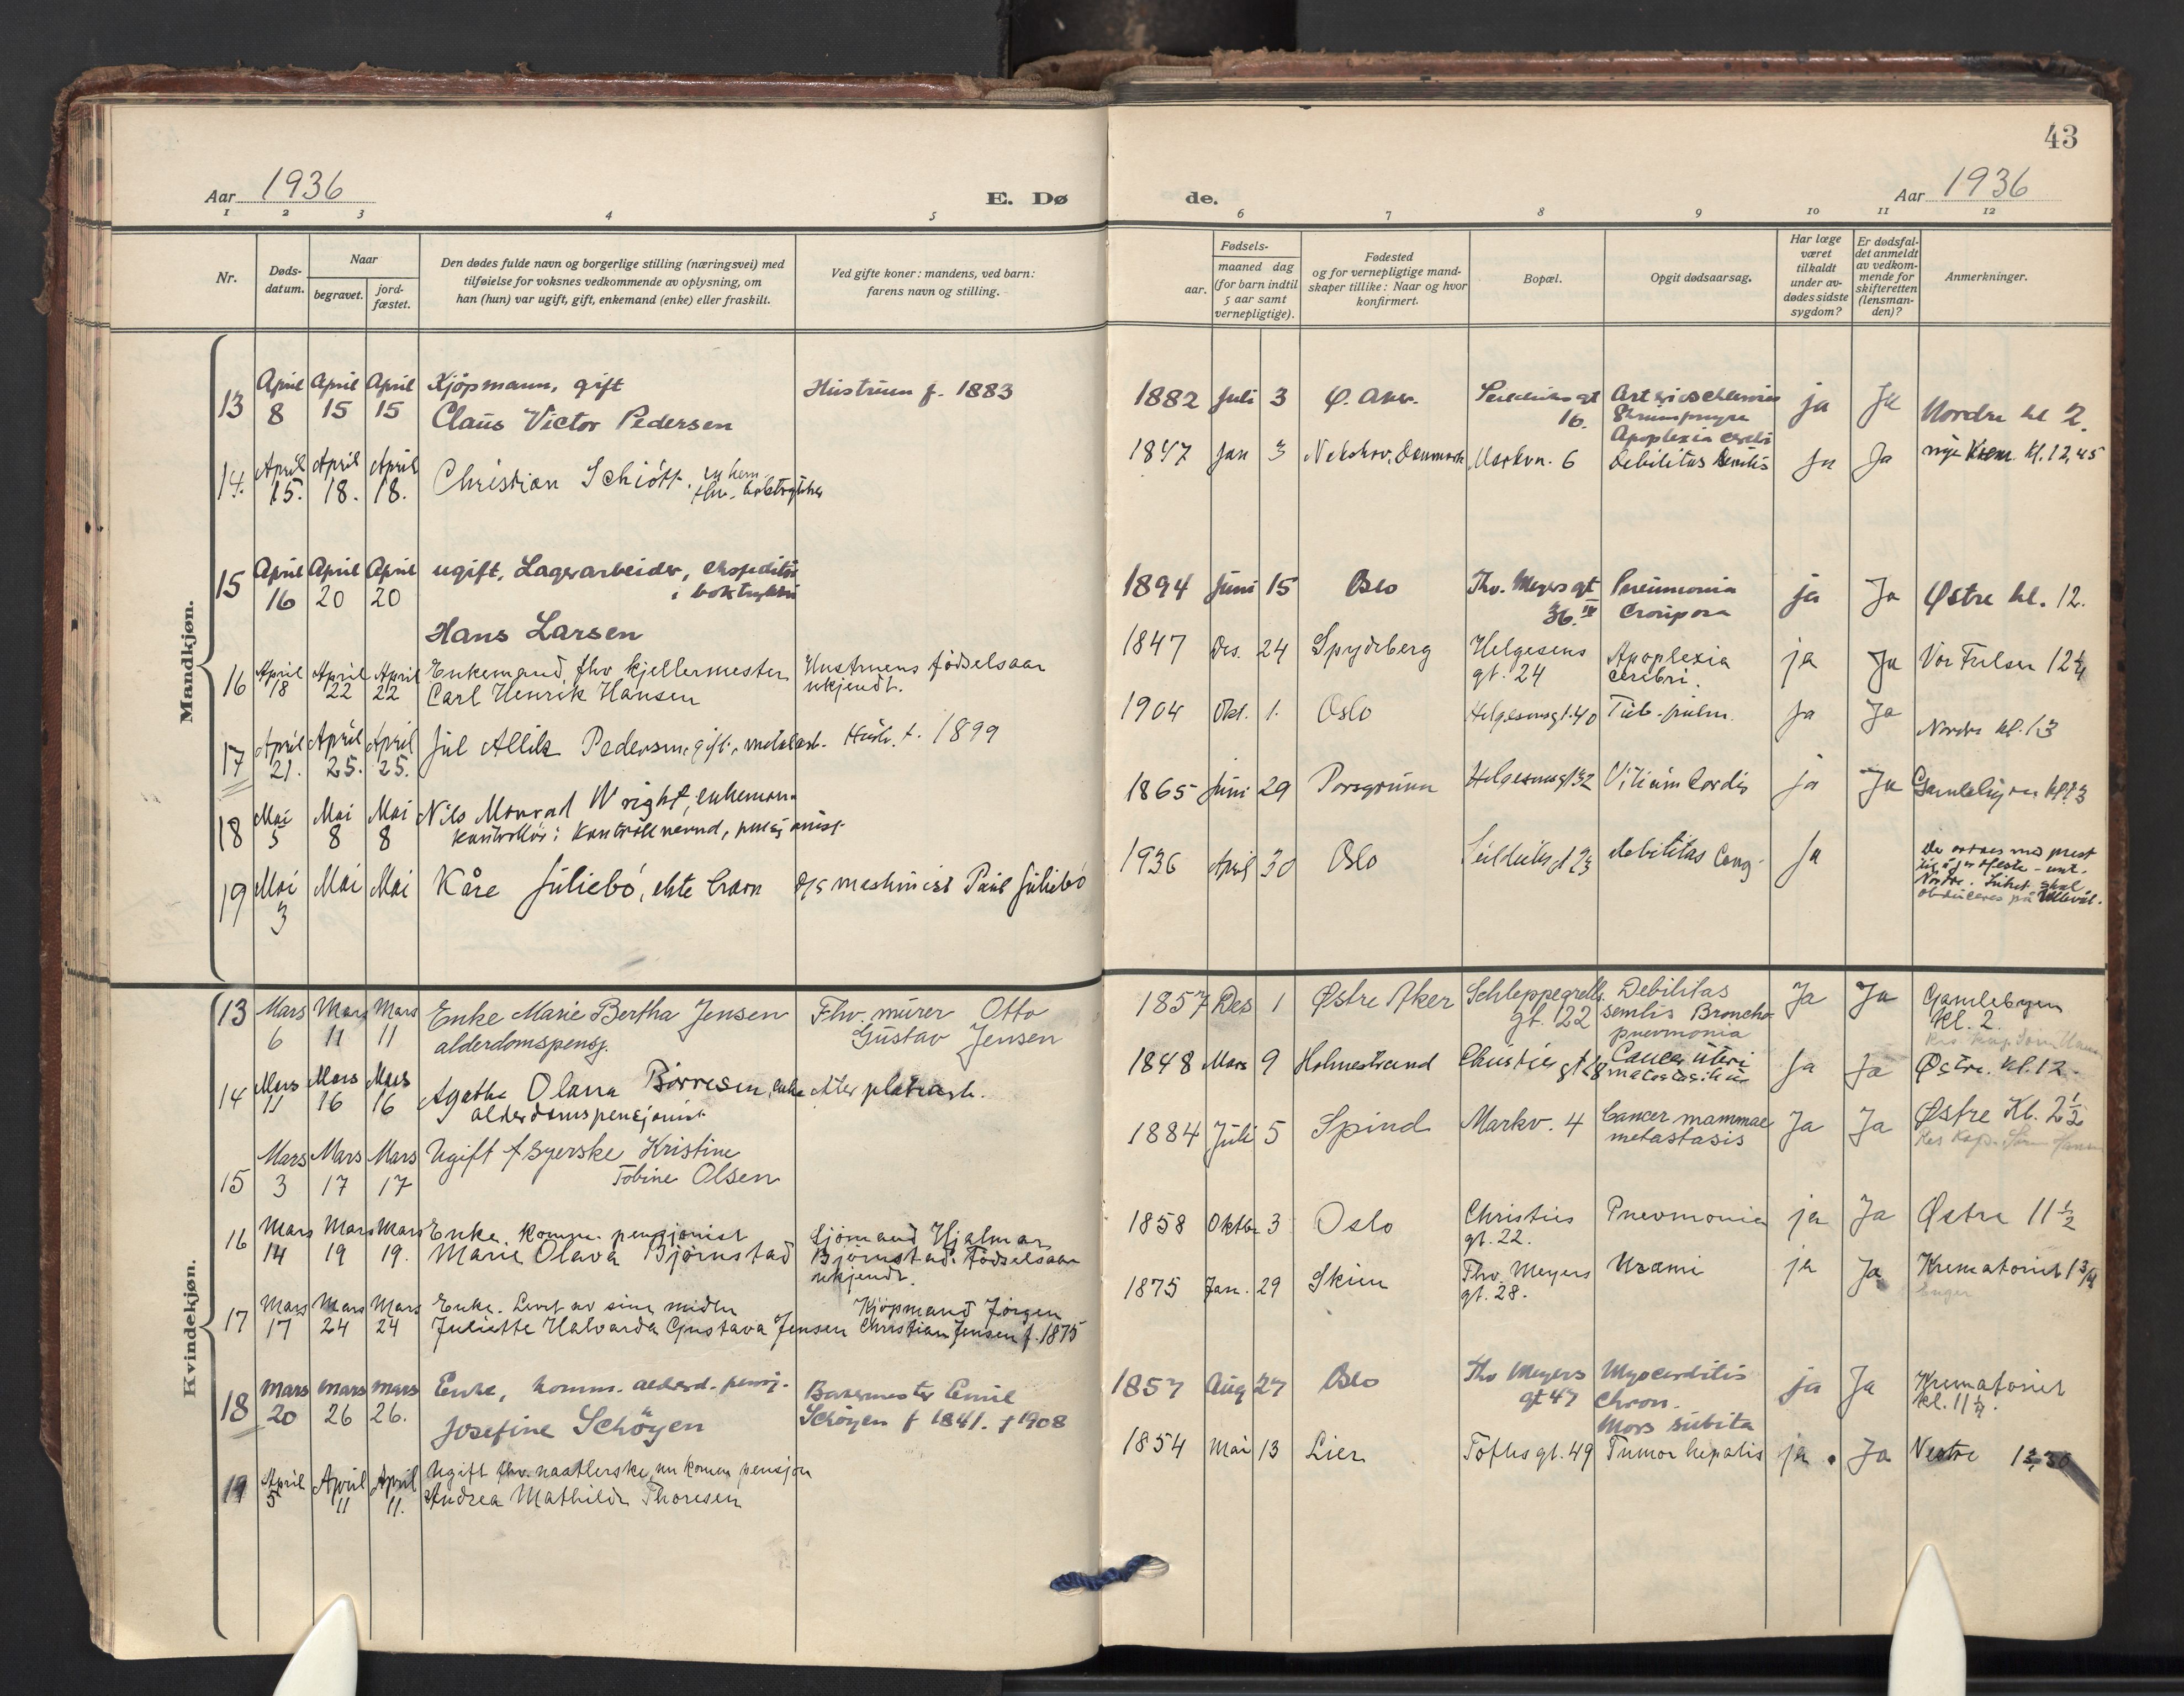 43
Aar 1936
E. Dø
de.
Aar 1936
1 2 3 4 5 6 7 8 9 10 11 12
Nr.
Døds-
datum.
Naar
begravet.
jord-
fæstet.
Den dødes fulde navn og borgerlige stilling (næringsvei) med
tilføielse for voksnes vedkommende av oplysning, om
han (hun) var ugift, gift, enkemand (enke) eller fraskilt.
Ved gifte koner: mandens, ved barn:
farens navn og stilling.
Fødsels-
aar.
maaned dag
(for barn indtil
5 aar samt
vernepligtige).
Fødested
og for vernepligtige mand-
skaper tillike: Naar og hvor
konfirmert.
Bopæl.
Opgit dødsaarsag.
Har læge
været
tilkaldt
under av-
dødes sidste
sygdom?
Er dødsfal-
det anmeldt
av vedkom-
mende for
skifteretten
(lensman-
den)?
Anmerkninger.
Mandkjøn.
13 April 8 April 15 April 15
Kjöpmann, gift
Claus Victor Pedersen
Hustruen f. 1883
1882 Juli 3 Ø. Aker
16.
ja Ja Nordre kl 2.
14. April 15. April 18. April 18.
Christian Schiött.
1847 Jan 3 Nakskov, Danmark Markvn. 6
Apoplexia cerebri
Debilitas senilis
Ja Ja nye Krem. Kl. 12,45
15 April 16 April 20 April 20
ugift, Lagerarbeider, ekspeditör
i boktrykkeri
Hans Larsen
1894 Juni 15 Oslo
Thv. Meyers gt
36. IV
Pneumonia
Crouposa
ja Ja Østre kl. 12.
16 April 18 April 22 April 22
Enkemand, fhv kjellermester
Carl Henrik Hansen
Hustruens födselsaar
ukjendt.
1847 Des. 24 Spydeberg
Helgesens
gt. 24
Apoplexia
cerebri.
ja Ja Vor Frelser 12¼
17 April 21. April 25. April 25.
Jul Allik Pedersen, gift, metalarb.
Hustr. f. 1899
1904 Okt. 1. Oslo Helgesensgt. 40 Tub. pulm. Ja Ja Nordre kl. 13
18 Mai 5 Mai 8 Mai 8
Nils Monrad Wright, enkemann
kontrollör i Kontrollnevnd, pensjonist
1865 Juni 29 Porsgrunn Helgesensgt 32 Vitium Cordis ja Ja Gamlebyen kl. 13
19 Mai 3 Mai Mai
Kåre Juliebö, ekte barn
D/S maskinist Paul Juliebö
1936 April 30 Oslo debilitas Cong. Ja
obduceres på Ullevål.
Kvindekjøn.
13 Mars 6 Mars 11 Mars 11
Enke Marie Bertha Jensen
alderdomspensj.
Fhv. murer Otto
Gustav Jensen
1857 Des 1 Østre Aker
Schleppegrells
gt. 22
Debilitas
senilis Broncho
pneumonia
Ja Ja Gamlebyen
Kl. 2.
14 Mars 11 Mars 16 Mars 16
Agathe Olava Börresen, enke etter platearb.
alderdomspensjonist
1848 Mars 9 Holmestrand Christies gt 28
Cancer uteri
Ja Ja Østre. Kl. 12.
15 Mars 3 Mars 17 Mars 17
Ugift Syerske Kristine
Tobine Olsen
1884 Juli 5 Spind Markv. 4
Cancer mammae
metastasis
Ja Ja Østre Kl. 2½
16 Mars 14 Mars 19 Mars 19.
Enke. Komm. pensjonist
Marie Olava Bjørnstad
Sjömand Hjalmar
Bjørnstad. Födselsaar
ukjendt.
1858 Oktbr 3 Oslo
Christies
gt. 22.
Pneumonia ja Ja Østre 11½
17 Mars 17 Mars 24 Mars 24
Enke. Levet av sine midler
Juliette Halvarda Gustava Jensen
Kjöpmand Jörgen
Christian Jensen f. 1875
1875 Jan. 29 Skien
Thv. Meyers
gt. 28.
Urami ja Ja Krematoriet 1¾
18 Mars 20 Mars 26 Mars 26.
Enke, komm. alderd. pensj.
Josefine Schöyen
Bakermester Emil
Schöyen f 1841. † 1908
1857 Aug 27 Oslo
Thv Meyers
gt 47
Myocarditis
chron.
Mors subita
ja Ja Krematoriet
kl. 11¼.
19 April 5 April 11 April 11.
Ugift fhv. naatlerske, nu komm pensjon
Andrea Mathilde Thoresen
1854 Mai 13 Lier Toftes gt. 49 Tumor hepatis ja Ja Vestre